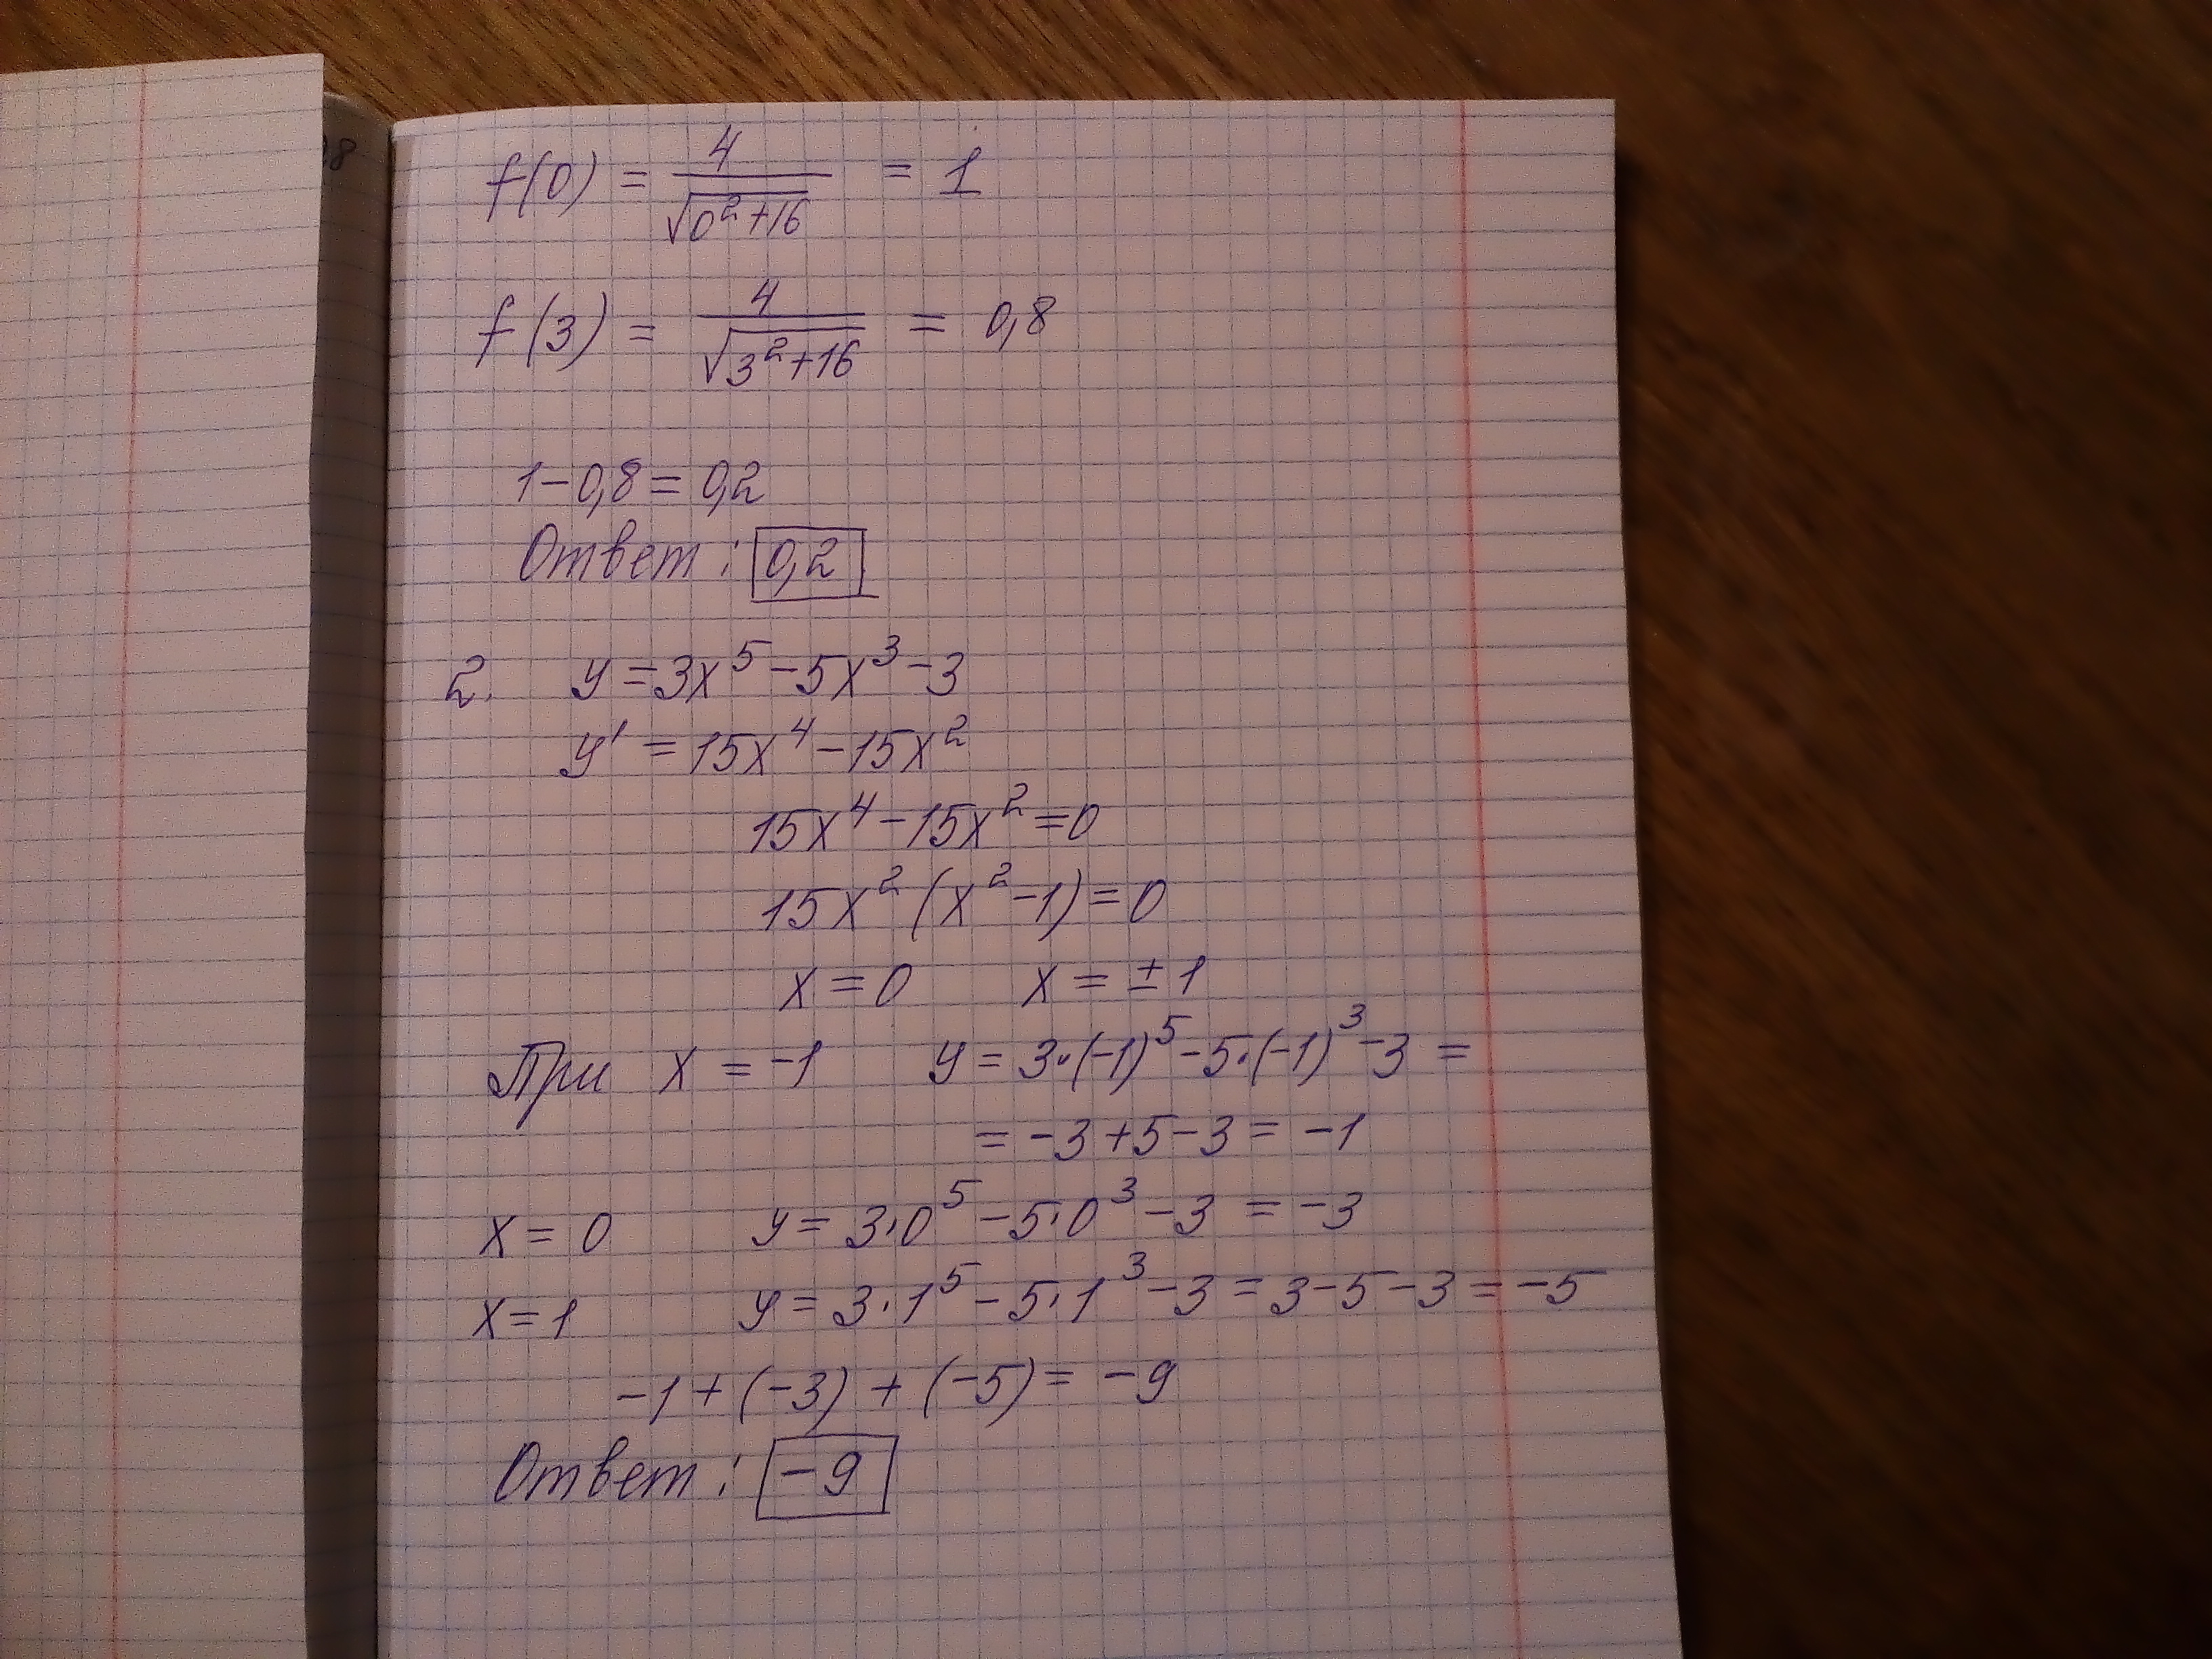 8
f(0) = 4/√(0²+16) = 1
f(3) = 4/√(3²+16) = 0,8
1-0,8 = 0,2
Ответ: 0,2
2. y = 3x⁵-5x³-3
y' = 15x⁴-15x²
15x⁴-15x²=0
15x²(x²-1)=0
x=0 x=±1
При x = -1 y = 3·(-1)⁵-5·(-1)³-3 =
= -3+5-3 = -1
x = 0 y = 3·0⁵-5·0³-3 = -3
x=1 y = 3·1⁵-5·1³-3=3-5-3=-5
-1+(-3)+(-5)=-9
Ответ: -9